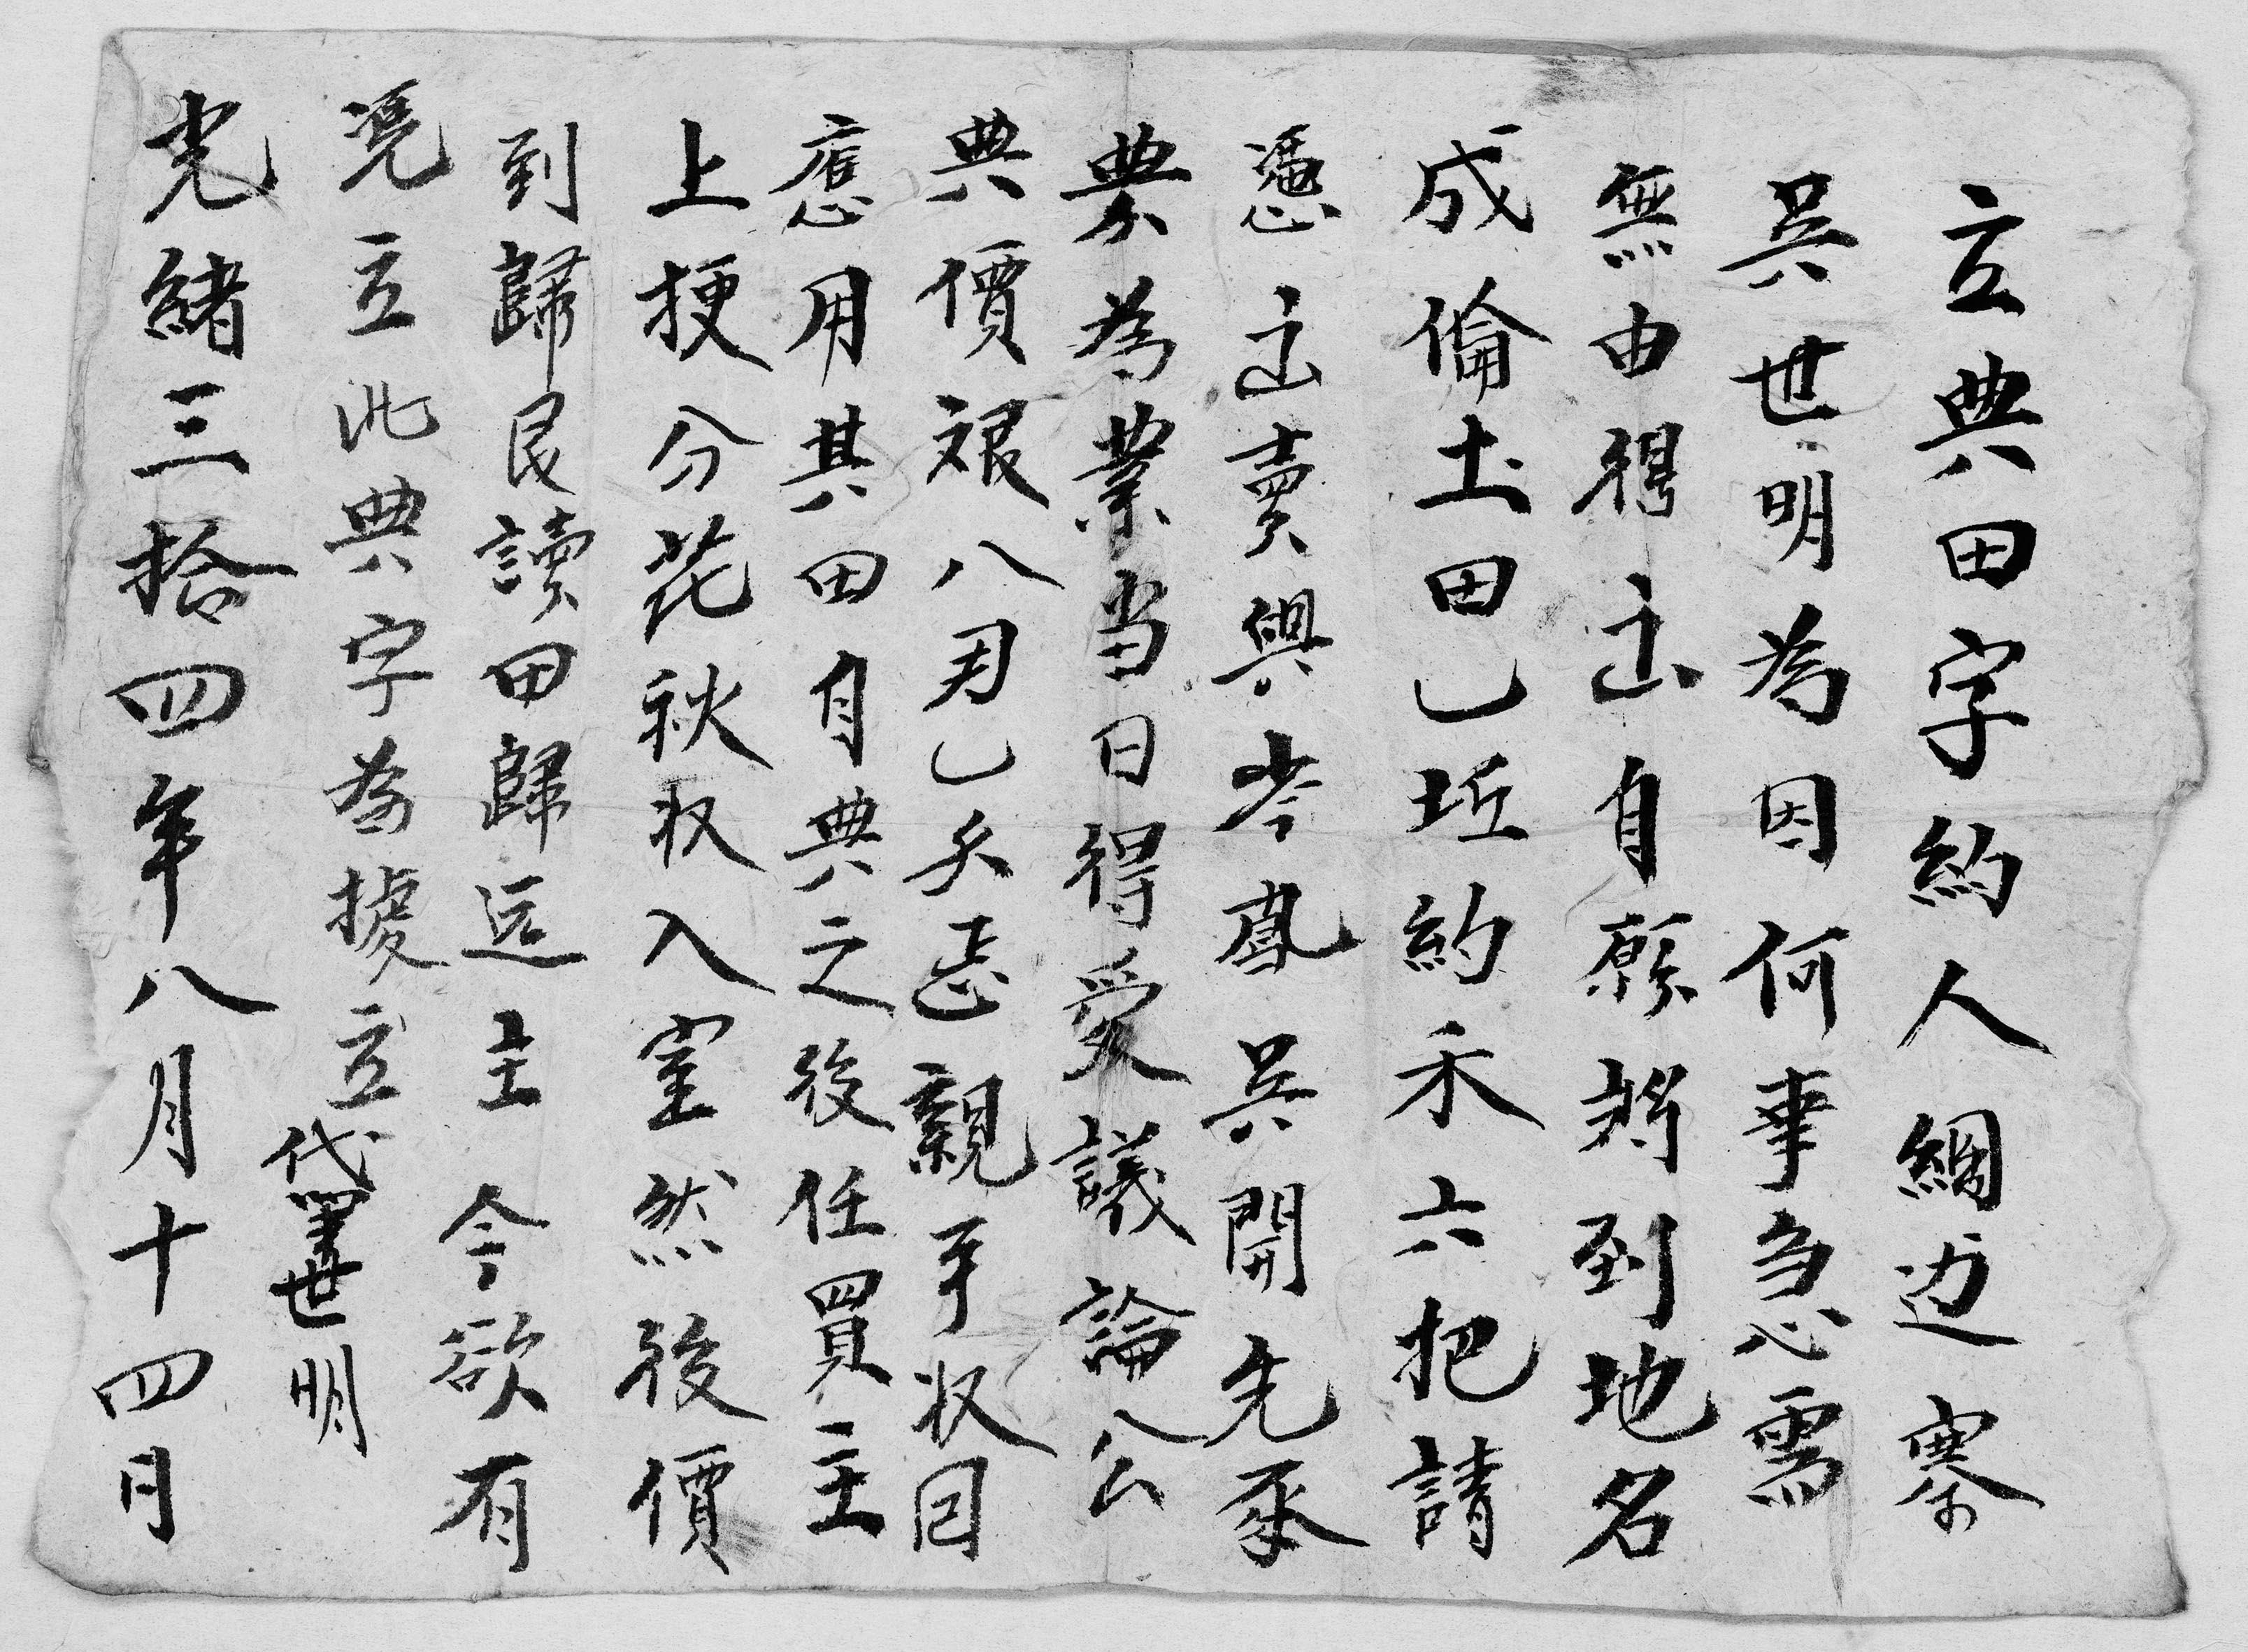 立典田字約人綱边寨
吳世明為因何事急需
無由得出自愿将到地名
成倫土田乚坵約禾六把請
憑出賣與岑鳳吳開先承
業為業当日得受議論公
典價艰八刄乚乆正親手收囙
應用其田自典之後任買主
上挭分花秋收入室然後價
到歸艮讀田歸远主今欲有
凴立此典字為據立
代筆世明
光緒三拾四年八月十四日